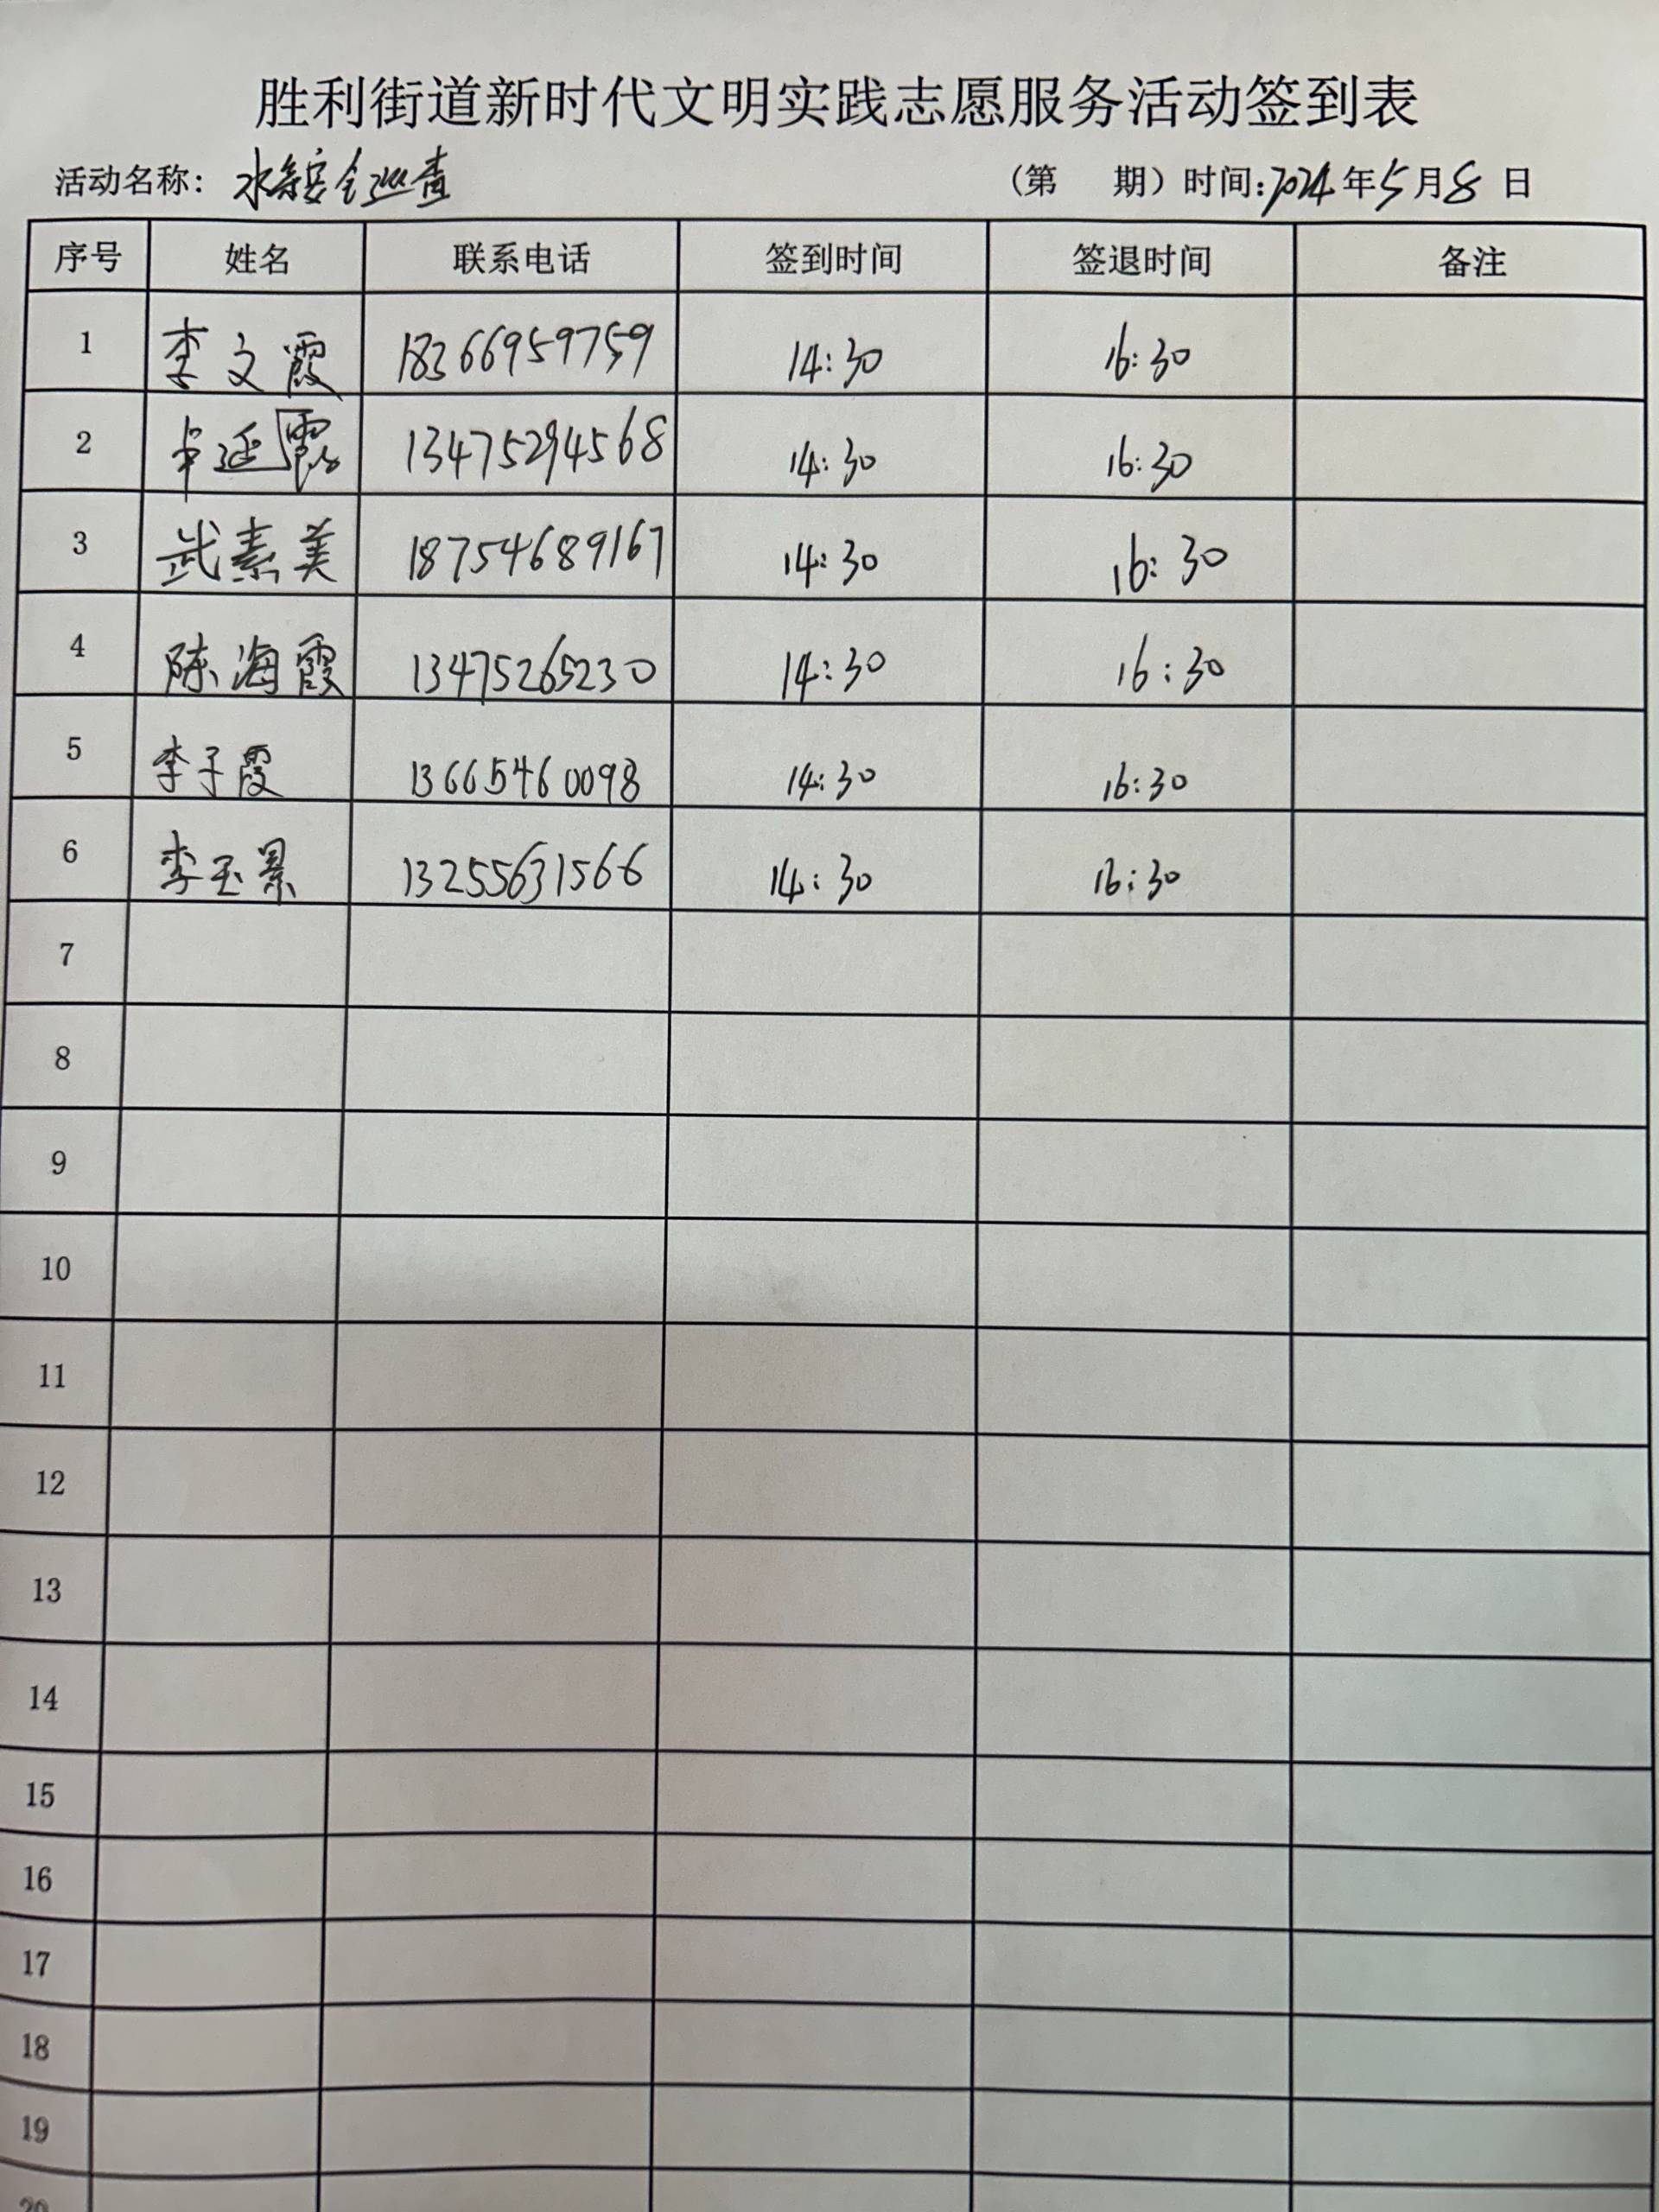 胜利街道新时代文明实践志愿服务活动签到表
活动名称: 水系安全巡查 (第 期) 时间: 2024 年 5 月 8 日
序号 姓名 联系电话 签到时间 签退时间 备注
1 李文霞 18366959759 14:30 16:30
2 延霞 13475294568 14:30 16:30
3 武素美 18754689167 14:30 16:30
4 陈海霞 13475265230 14:30 16:30
5 李子霞 13665460098 14:30 16:30
6 李玉景 13255631566 14:30 16:30
7
8
9
10
11
12
13
14
15
16
17
18
19
20